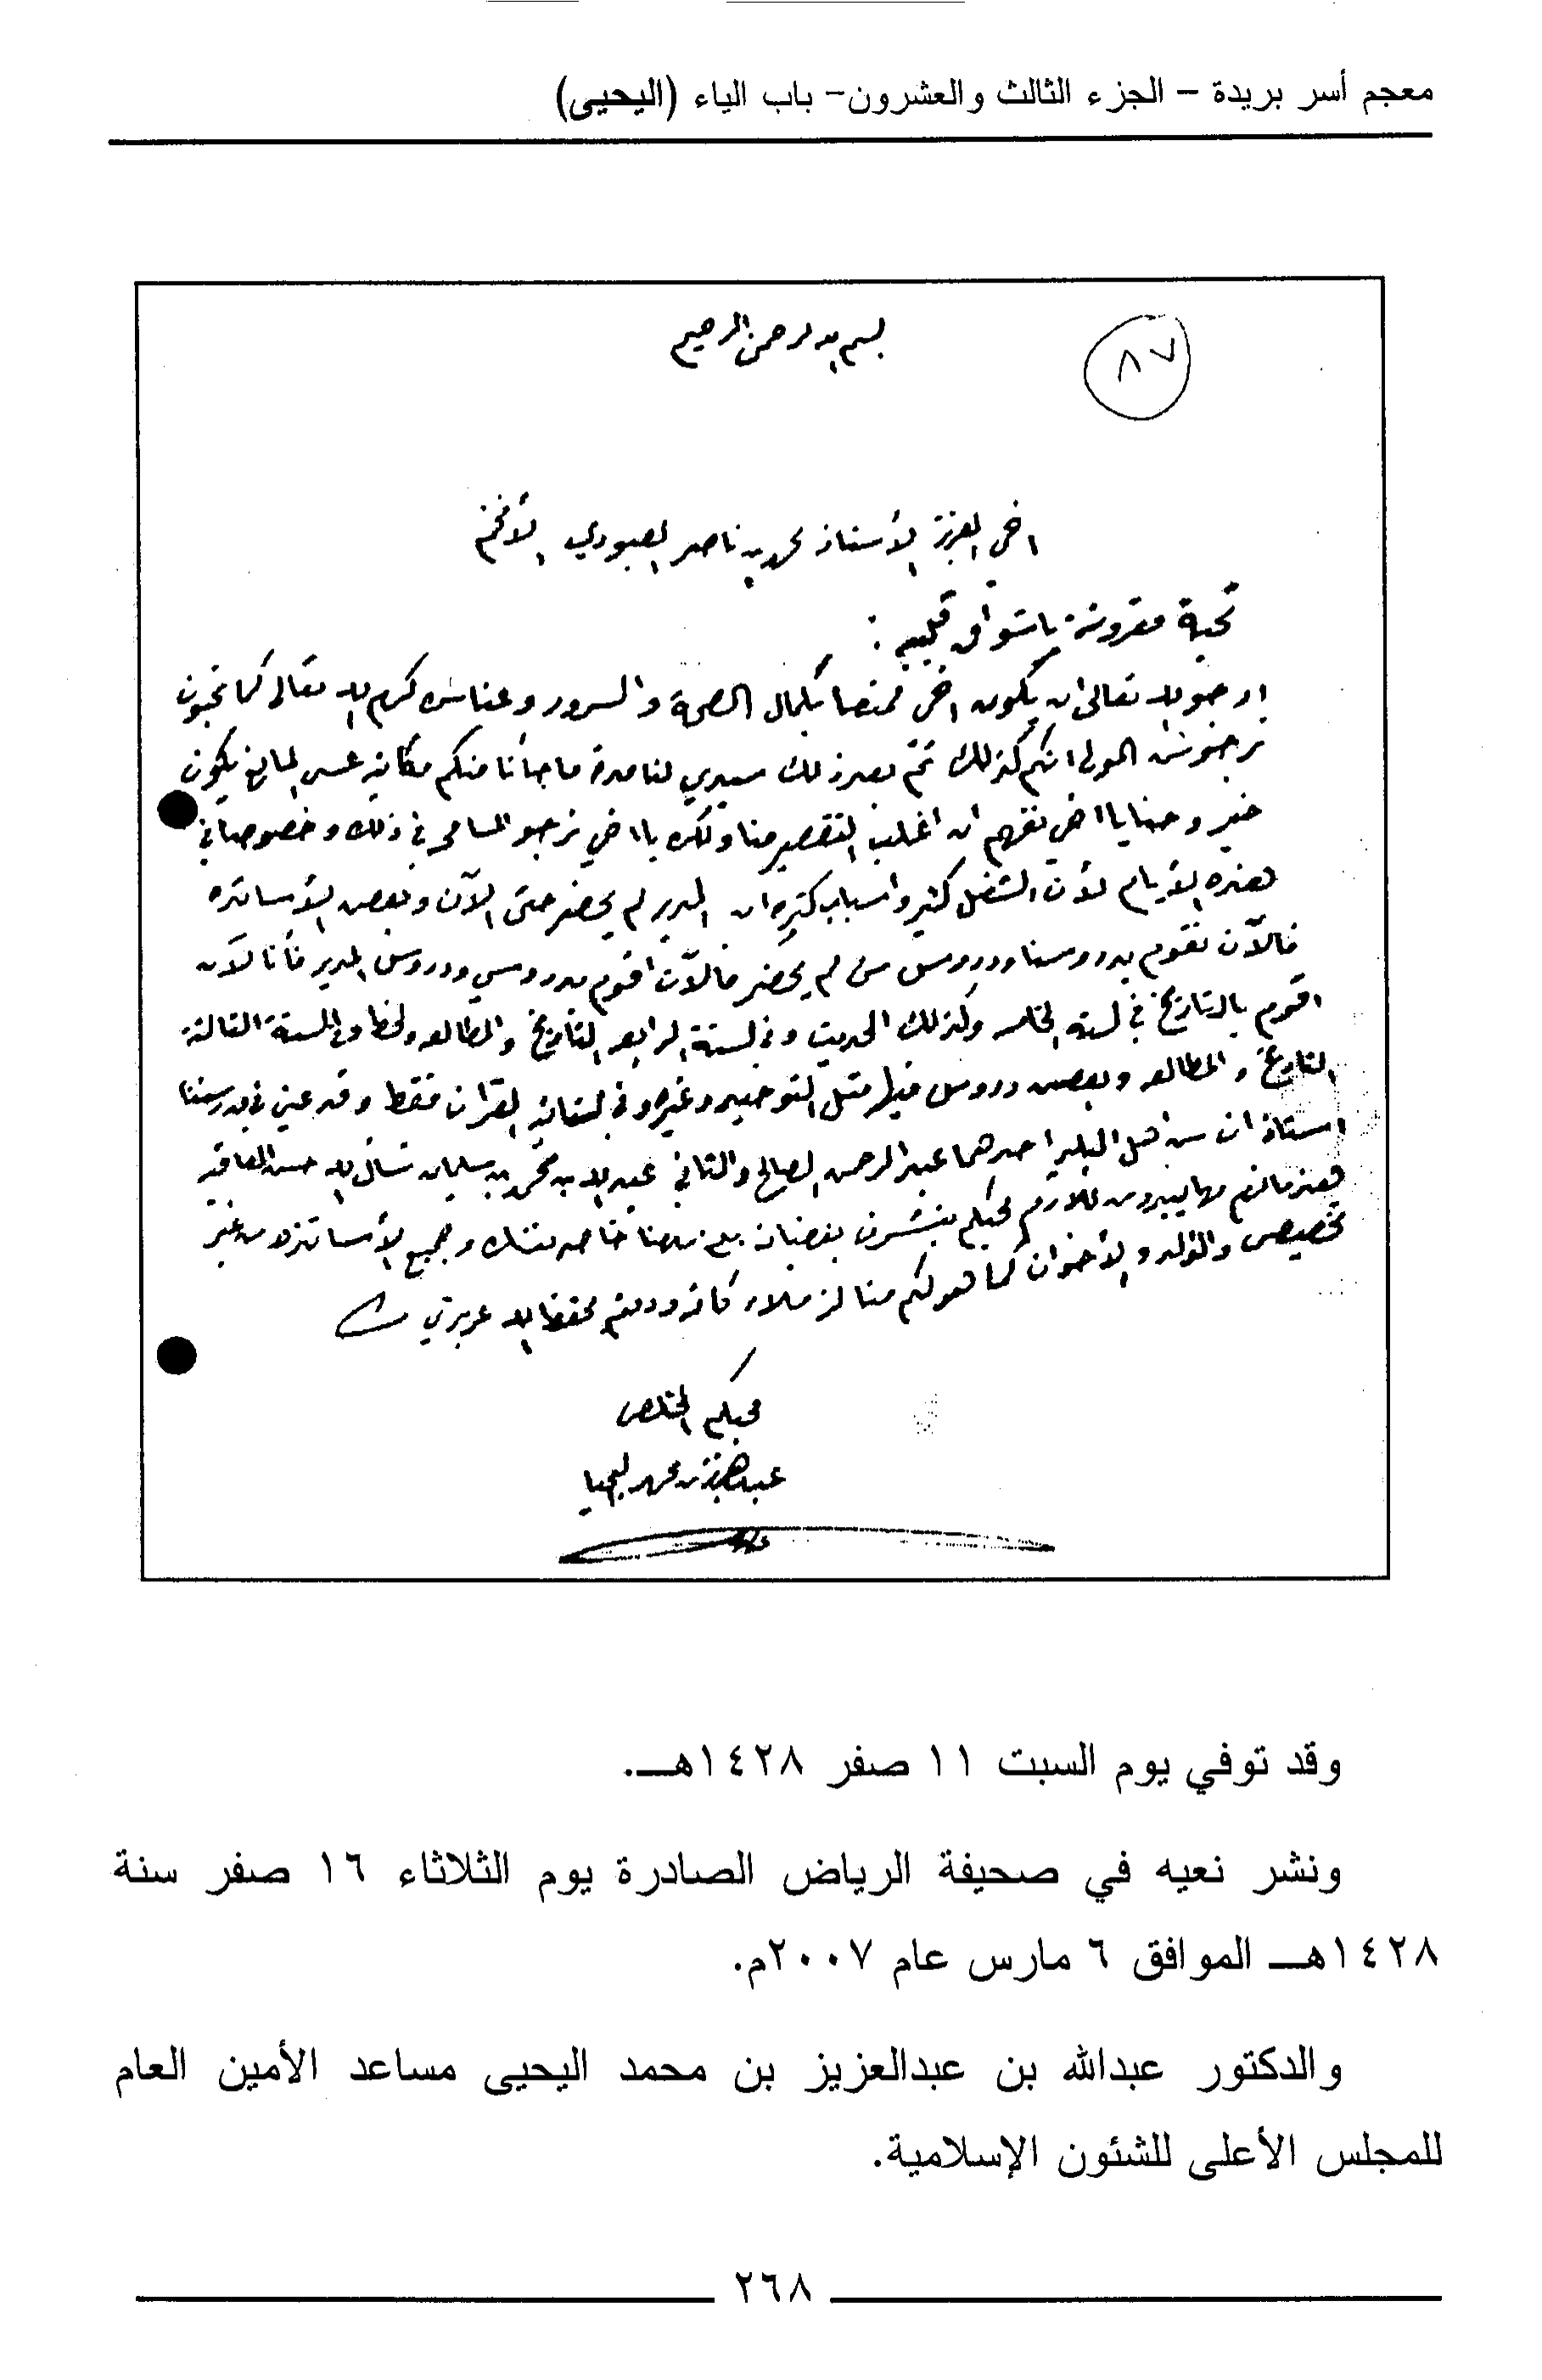 معجم أسر بريدة – الجزء الثالث والعشرون– باب الياء (اليحيى)
٨٧
بسم الله الرحمن الرحيم
اخي العزيز الأستاذ محمد بن ناصر العبودي الأفخم
تحية مقرونة باشواق قلبيه :
ارجو الله تعالى ان يكون اخي ممتعا بكمال الصحة والسرور وعنا نشكره كرم الله تعالى كما تحبون
نرجو من المولى انكم كذلك ثم بعد ذلك سيدي لنا مدة ما جأنا منكم مكاتيب عسى المانع يكون
خير وحنا يا اخي نفهم ان اغلب التقصير منا ولكن يا اخي نرجو المسامحه في ذلك وخصوصا في
هذه الأيام لأن الشغل كثير واسباب كثره ان المدير لم يحضر حتى الآن وبعض الأساتذه
فالآن نقوم بدروسنا ودروس من لم يحضر فالآن اقوم بدروسي ودروس المدير فأنا الآن
اقوم بالتاريخ في السنه الخامسه وكذلك الحديث وفي السنة الرابعه التاريخ والمطالعه والخط وفي السنة الثالثة
التاريخ والمطالعه وبعض دروس فيها مثل التوحيد وغيره وفي الثانيه القران فقط وقد عين في مدرستنا
استاذان من اهل البلد احدهما عبد الرحمن الصالح والثاني عبد الله بن محمد بن سليمان نسأل الله حسن العاقبه
هذا ما لزم مهما يبدو من اللازم محبكم يتشرف بقضيانه بلغ سلامنا خاصه نفسك وجميع الأساتذه من غير
تخصيص والوالد والأخوان كما هو لكم منا الزملاء كافه ودمتم بحفظ الله عزيزي
محبكم المخلص
عبد العزيز بن محمد اليحيا
وقد توفي يوم السبت ١١ صفر ١٤٢٨هــ.
ونشر نعيه في صحيفة الرياض الصادرة يوم الثلاثاء ١٦ صفر سنة
١٤٢٨هــ الموافق ٦ مارس عام ٢٠٠٧م.
والدكتور عبدالله بن عبدالعزيز بن محمد اليحيى مساعد الأمين العام
للمجلس الأعلى للشئون الإسلامية.
٢٦٨